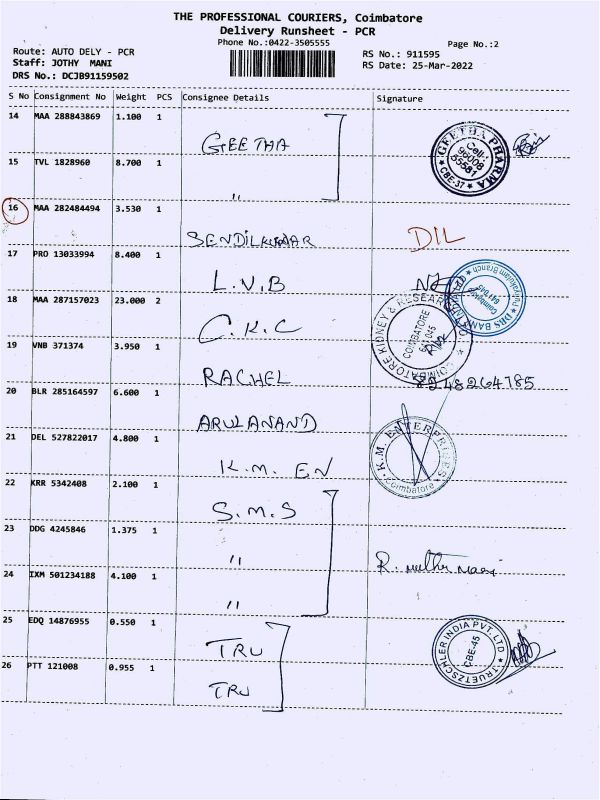 THE PROFESSIONAL COURIERS, Coimbatore
Delivery Runsheet - PCR
Phone No.:0422-3505555
Page No.:2
Route: AUTO DELY - PCR
RS No.: 911595
Staff: JOTHY MANI
RS Date: 25-Mar-2022
DRS No.: DCJB91159502
S No Consignment No Weight PCS Consignee Details Signature
14 MAA 288843869 1.100 1
GEETHA
GEETHA PHARMA
Cell: 98008 55581
CBE-37
15 TVL 1828960 8.700 1
"
16 MAA 282484494 3.530 1
SENDILKUMAR DIL
17 PRO 13033994 8.400 1
L.V.B
DBS BANK INDIA LTD
Coimbatore 641 045
Branch
18 MAA 287157023 23.000 2
C.K.C
COIMBATORE KIDNEY & RESEARCH
COIMBATORE 641 045
19 VNB 371374 3.950 1
RACHEL 8248264785
20 BLR 285164597 6.600 1
ARULANAND
21 DEL 527822017 4.800 1
K.M. EN
K.M. ENTERPRISES
Coimbatore
22 KRR 5342408 2.100 1
S.M.S
23 DDG 4245846 1.375 1
"
R. muthu mani
24 IXM 501234188 4.100 1
"
25 EDQ 14876955 0.550 1
TRU
TRUETZSCHLER INDIA PVT. LTD
CBE-45
26 PTT 121008 0.955 1
TRU